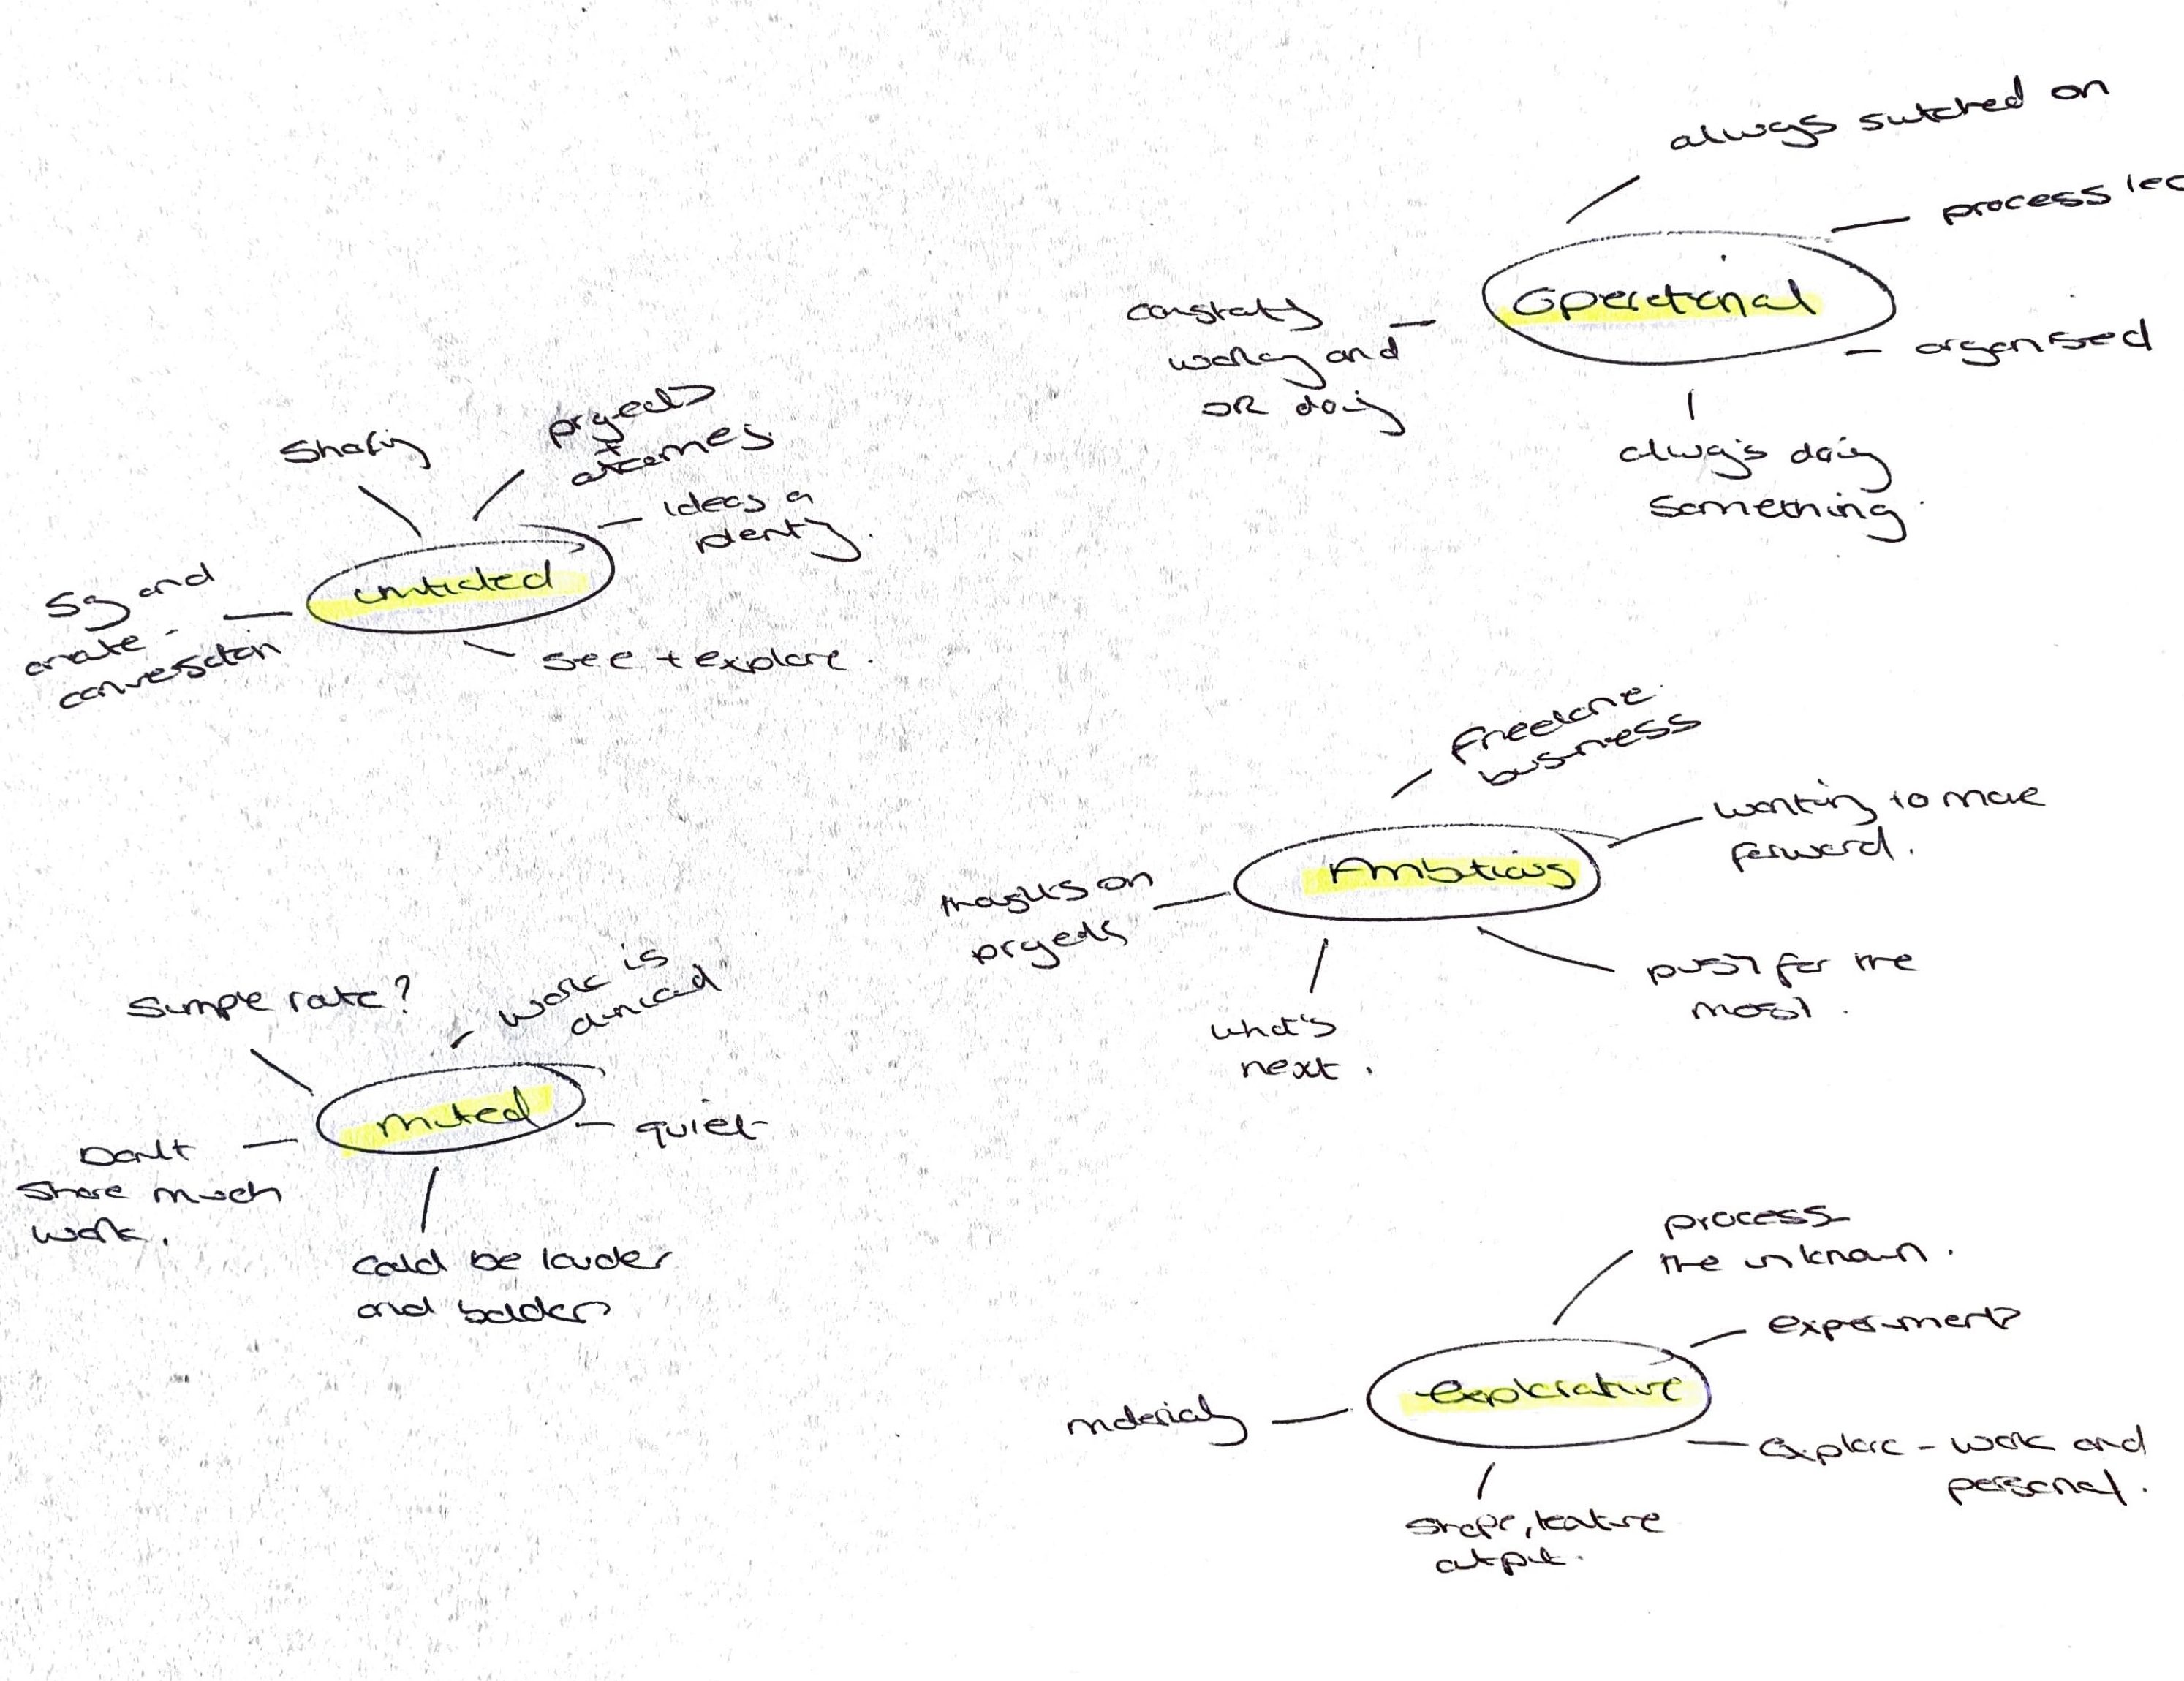 always switched on
process led
Operational
constantly
working and
OR doing
organised
always doing
something
Sharing
projects
+
outcomes
ideas a
plenty.
unmuted
Say and
create
conversation
see + explore.
Freelance
business
wanting to move
forward.
Ambitious
thoughts on
projects
push for the
most.
what's
next.
Simple rate?
work is
muted
quiet
Don't
share much
work.
could be louder
and bolder
process
the unknown.
experiment
explorative
materials
explore - work and
personal.
shape, texture
output.